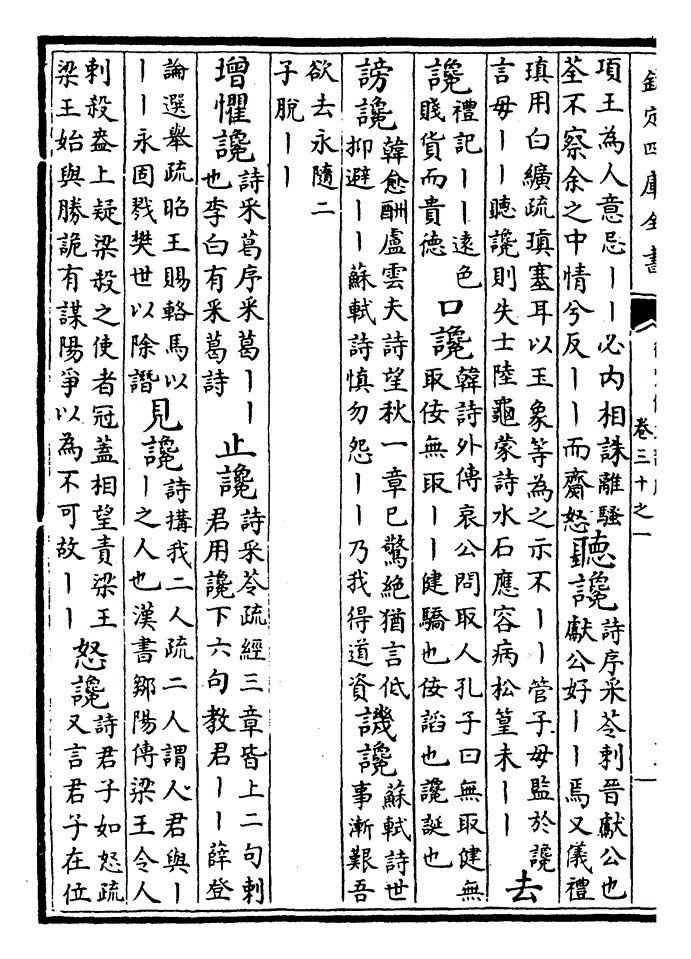 欽定四庫全書
卷三十之一
項王為人意忌丨丨必内相誅離騷
荃不察余之中情兮反丨丨而齌怒
聽讒
詩序采苓刺晉獻公也
獻公好丨丨焉又儀禮
瑱用白纊疏瑱塞耳以玉象等為之示不丨丨管子毋監於讒
言毋丨丨聽讒則失士陸龜蒙詩水石應容病松篁未丨丨
去
讒
禮記丨丨遠色
賤貨而貴徳
口讒
韓詩外傳哀公問取人孔子曰無取健無
取佞無取丨丨健驕也佞諂也讒誕也
謗讒
韓愈酬盧雲夫詩望秋一章已驚絶猶言低
抑避丨丨蘇軾詩慎勿怨丨丨乃我得道資
譏讒
蘇軾詩世
事漸艱吾
欲去永隨二
子脱丨丨
增懼讒
詩采葛序采葛丨丨
也李白有采葛詩
止讒
詩采苓疏經三章皆上二句刺
君用讒下六句教君丨丨薛登
論選舉疏昭王賜輅馬以
丨丨永固戮樊世以除譖
見讒
詩搆我二人疏二人謂人君與丨
丨之人也漢書鄒陽傳梁王令人
刺殺盎上疑梁殺之使者冠蓋相望責梁王
梁王始與勝詭有謀陽爭以為不可故丨丨
怒讒
詩君子如怒疏
又言君子在位